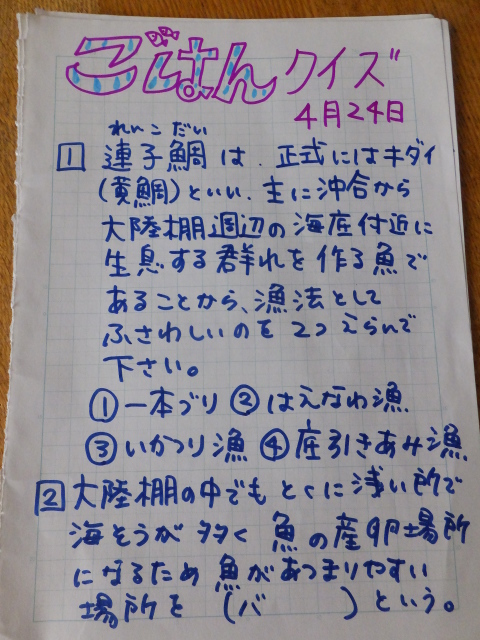 ごはんクイズ
4月24日
れいこ だい
1 連子鯛は、正式にはキダイ
(黄鯛)といい、主に沖合から
大陸棚周辺の海底付近に
生息する群れを作る魚で
あることから、漁法として
ふさわしいのを2つえらんで
下さい。
①一本づり ②はえなわ漁
③いかつり漁 ④底引きあみ漁
2 大陸棚の中でもとくに浅い所で
海そうが多く魚の産卵場所
になるため魚があつまりやすい
場所を(バ )という。